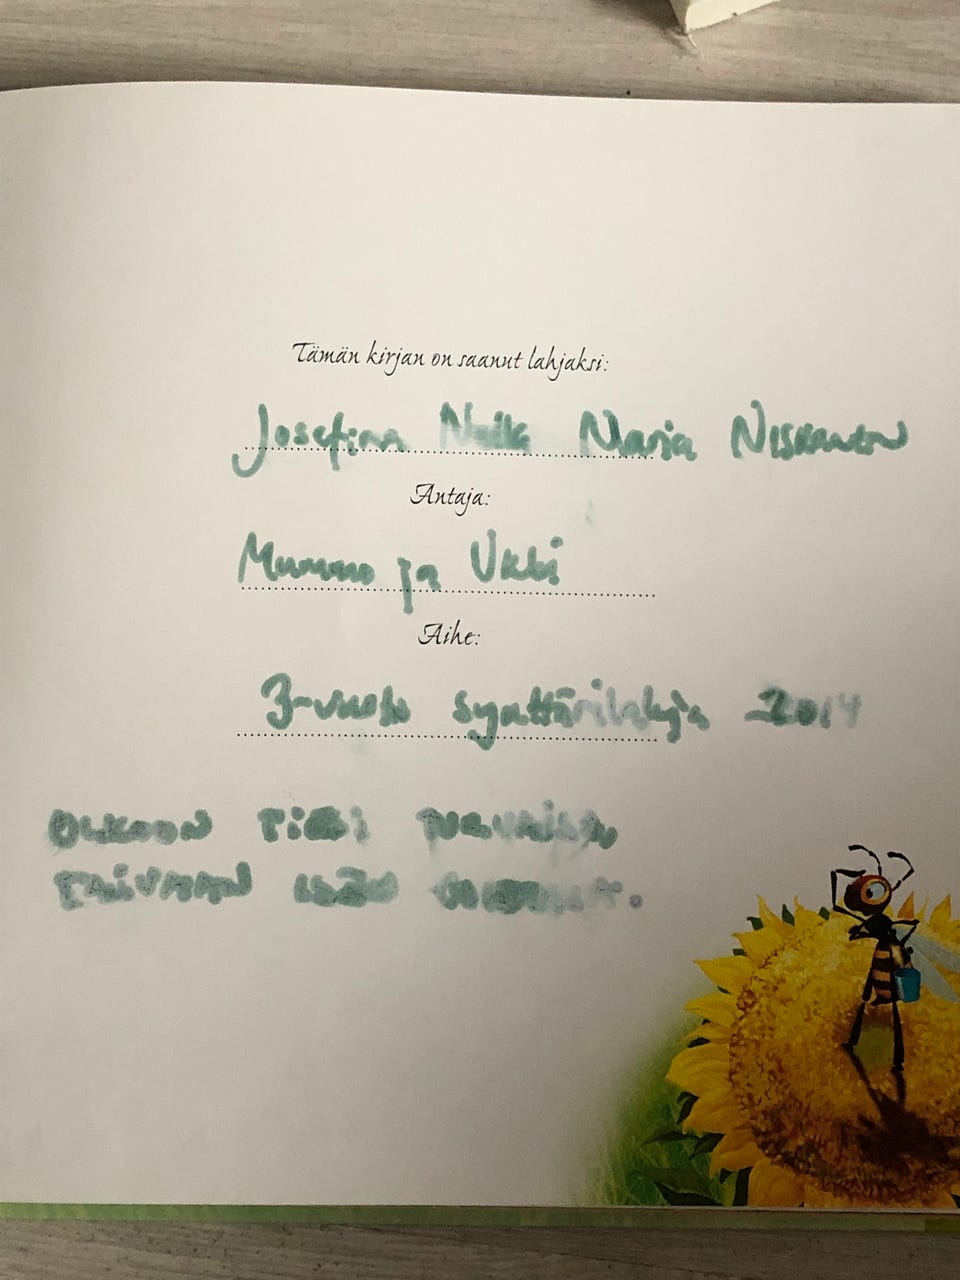 Tämän kirjan on saanut lahjaksi:
Josefina Maria Niskanen
Antaja:
Mummo ja Ukki
Aihe:
3-vuotis synttärilahja 2014
OLKOON TIESI
TAIVAAN ISÄN